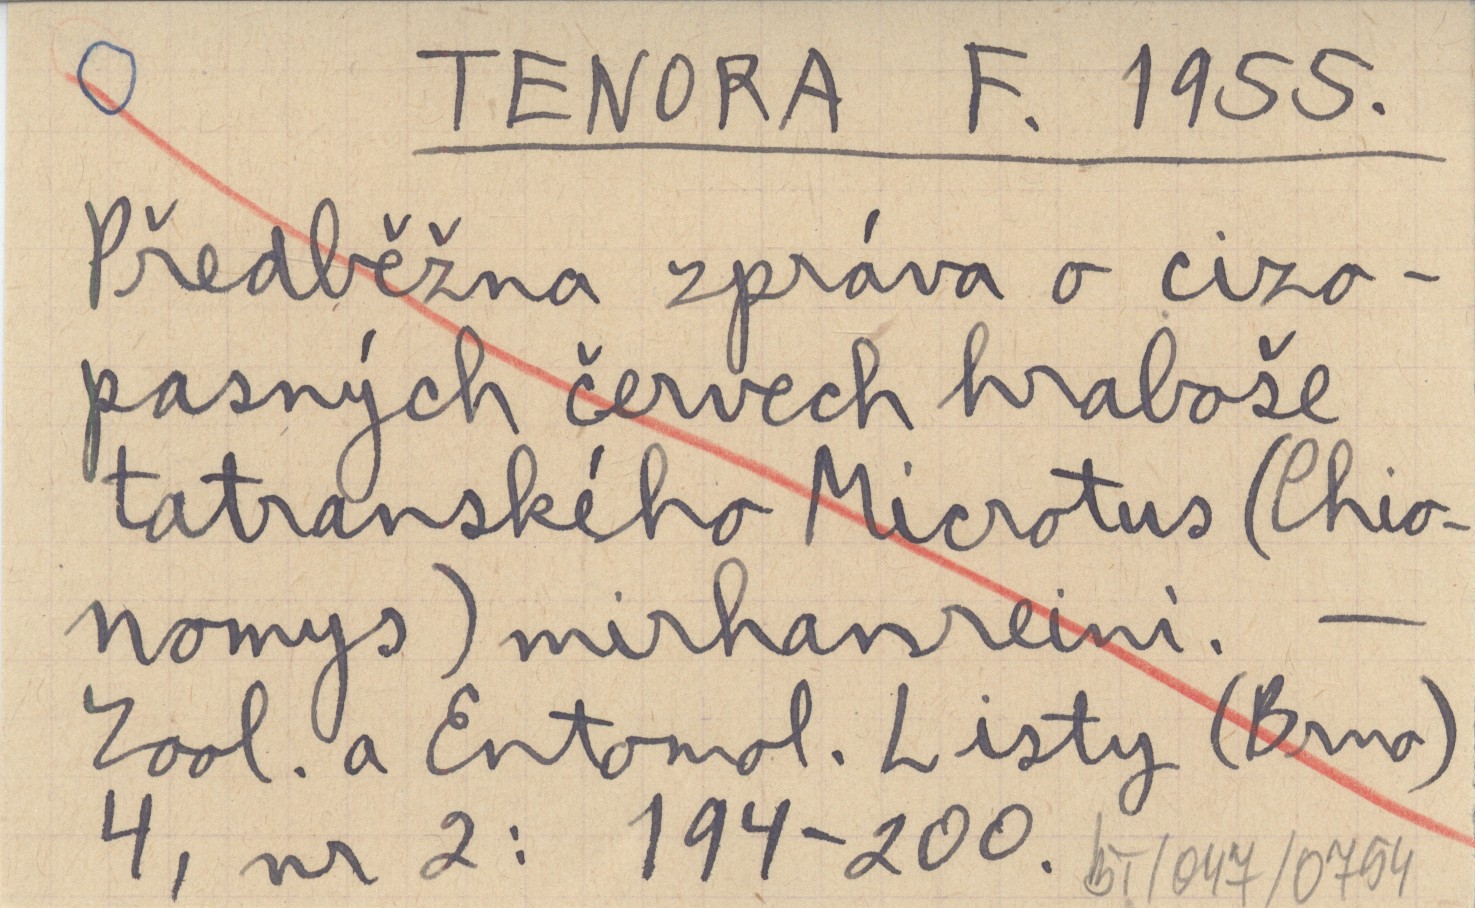 TENORA F. 1955.
Předběžna zpráva o cizo-
pasných červech hraboše
tatranského Microtus (Chio-
nomys) mirhanreini. —
Zool. a Entomol. Listy (Brno)
4, nr 2: 194-200.
BI/047/0754